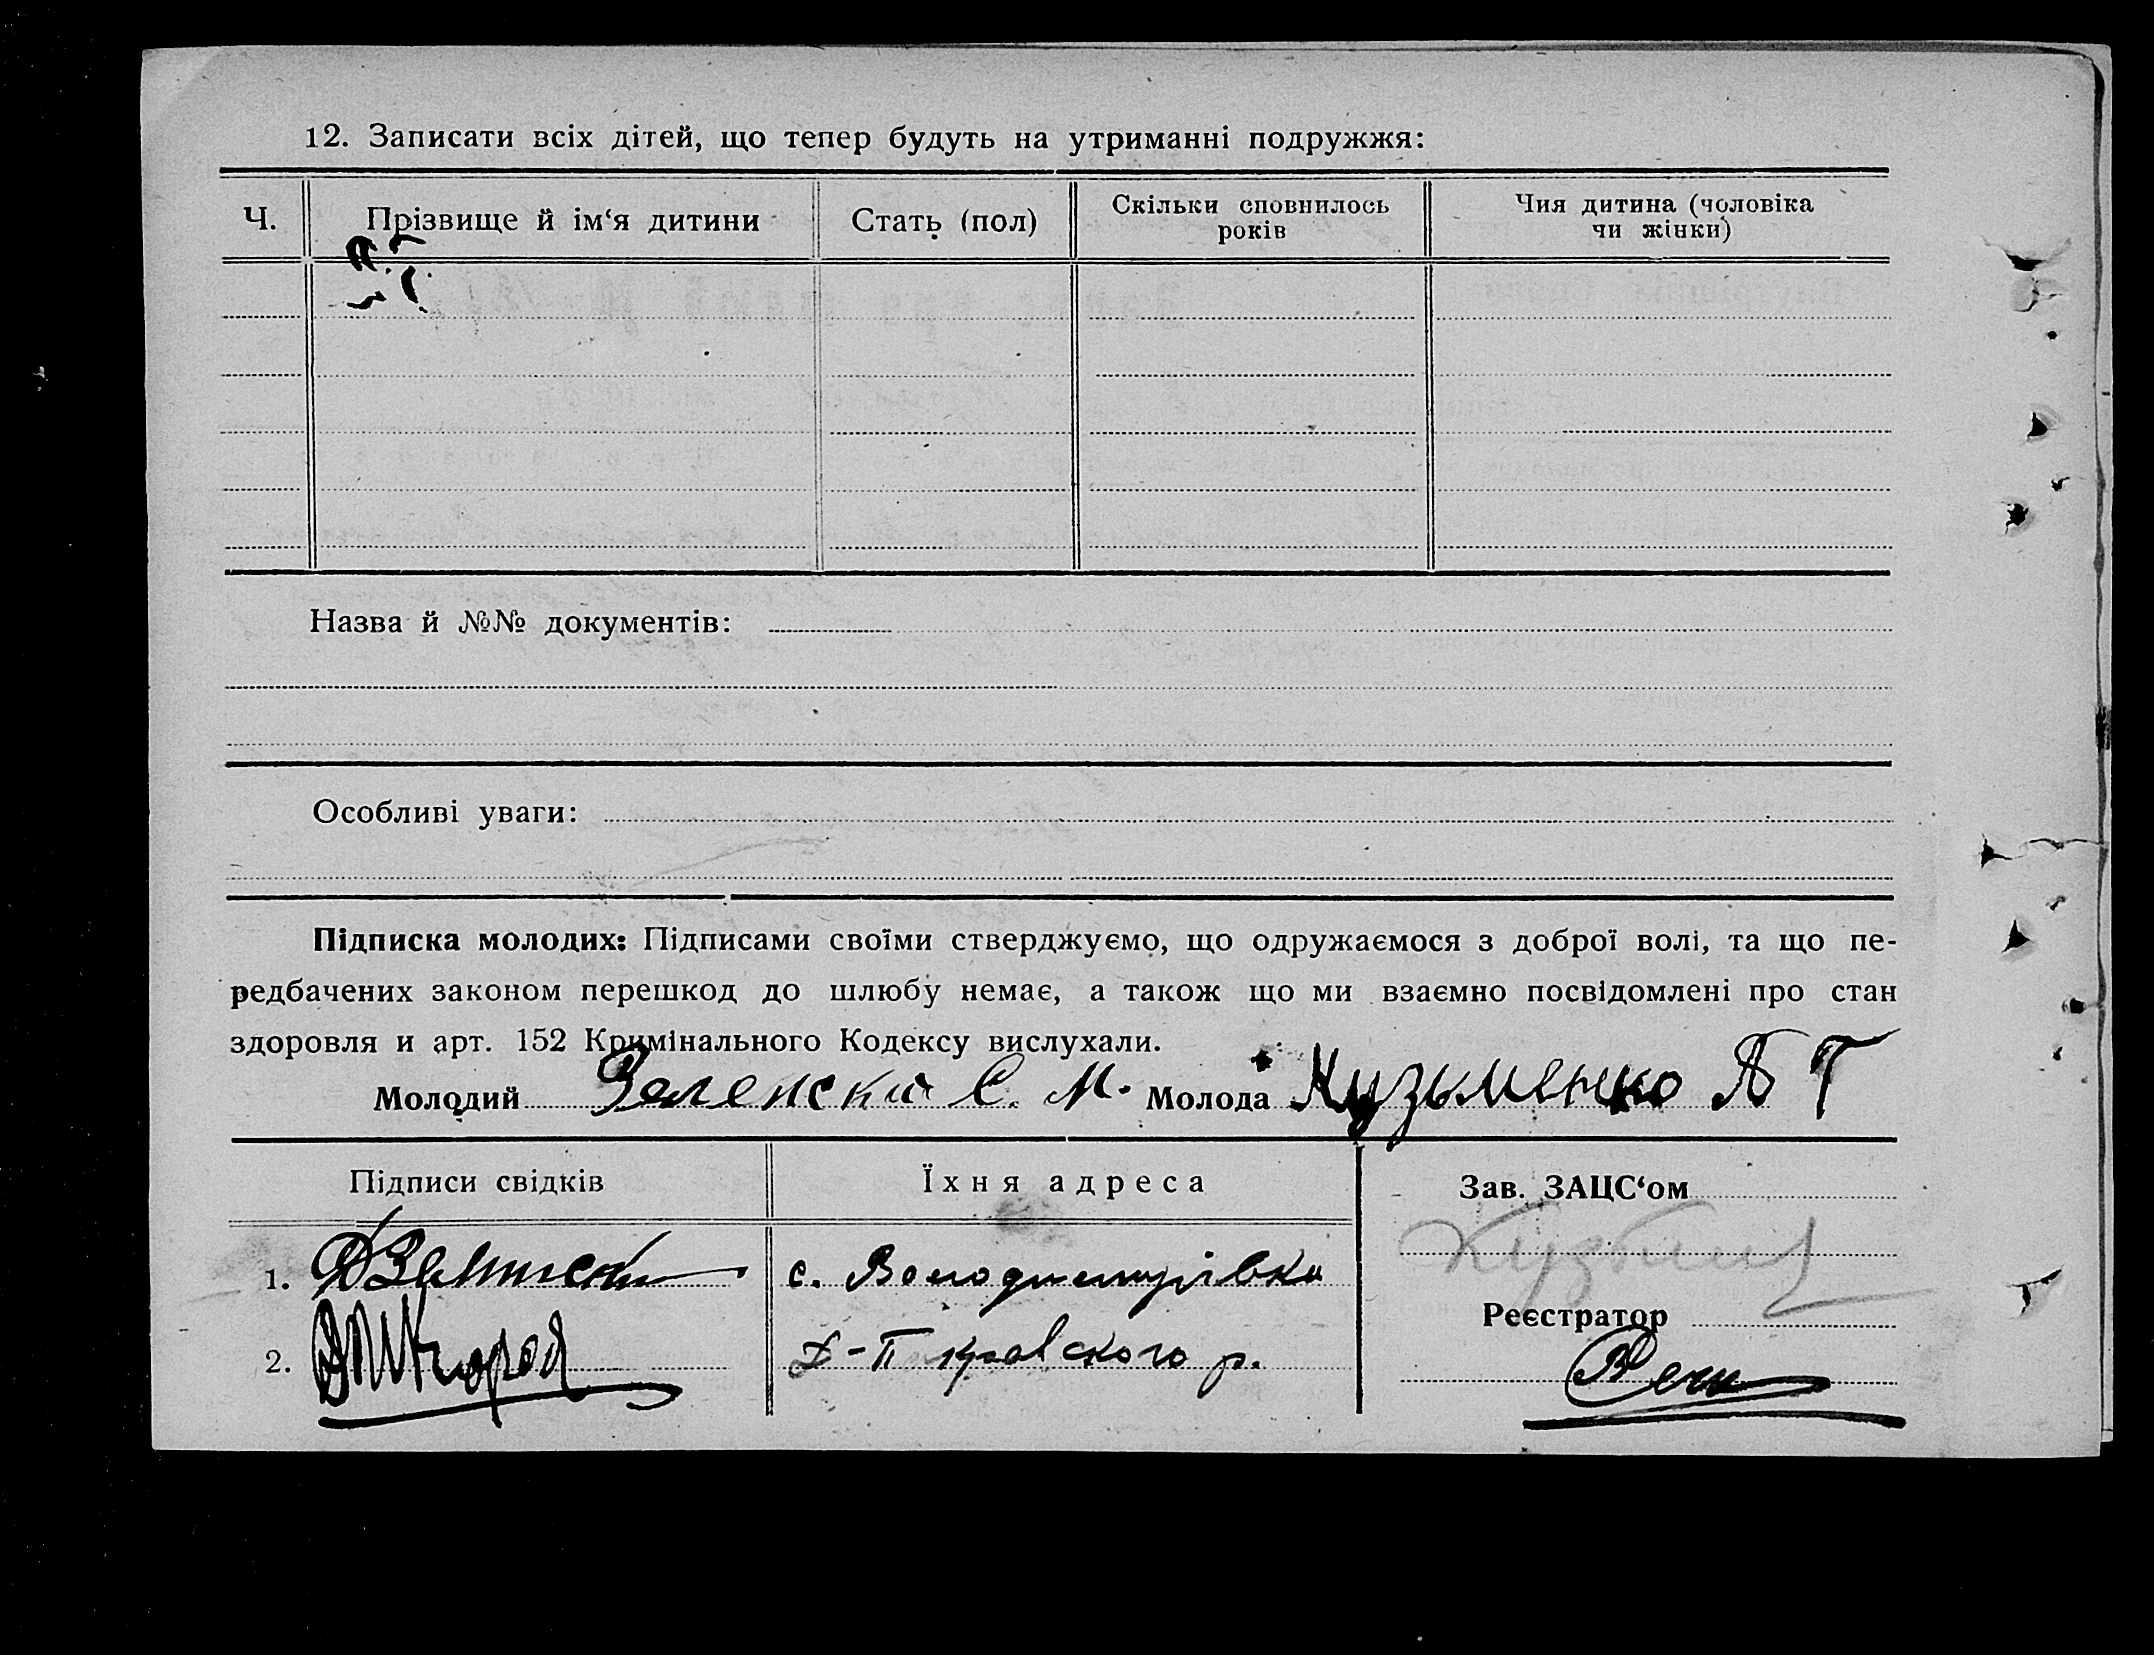 12. Записати всіх дітей, що тепер будуть на утриманні подружжя:
Ч. Прізвище й ім‘я дитини Стать (пол) Скільки сповнилось років Чия дитина (чоловіка чи жінки)
Назва й №№ документів:
Особливі уваги:
Підписка молодих: Підписами своїми стверджуємо, що одружаємося з доброї волі, та що пе-
редбачених законом перешкод до шлюбу немає, а також що ми взаємно посвідомлені про стан
здоровля и арт. 152 Кримінального Кодексу вислухали.
Молодий Зеленский С. М. Молода Кузьменко А Г
Підписи свідків Їхня адреса Зав. ЗАЦС‘ом
1. с. Володимирівка
Реєстратор
2. р.